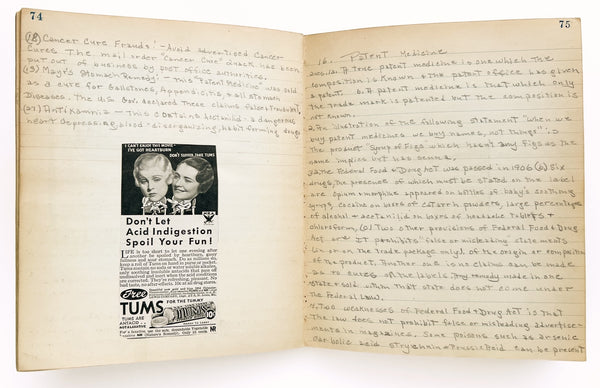 74
(18) Cancer Cure Frauds! - Avoid advertised Cancer
Cures. The mail order "Cancer Cure" quack has been
put out of business by post office authorities.
(19) Mayr's Stomach Remedy: - This "Patent Medicine" was sold
as a cure for Gallstones, Appendicitis, & all stomach
Diseases. The U.S. Gov. declared these claims false & fraudulent.
(21) Anti Kamnia - This contains Acetanilid - a dangerous
heart depressant, blood-disorganizing, habit forming drug.
I CAN'T ENJOY THIS MOVIE -
I'VE GOT HEARTBURN
DON'T SUFFER. TAKE TUMS
Don't Let
Acid Indigestion
Spoil Your Fun!
LIFE is too short to let one evening after
another be spoiled by heartburn, gassy
fullness and sour stomach. Do as millions do,
keep a roll of Tums on hand in purse or pocket.
Tums contain no soda or water soluble alkalis,
only soothing insoluble antacids that pass off
undissolved and inert when the acid conditions
are corrected. They're refreshing, pleasant. No
bad taste, no after-effects. 10c at all drug stores.
Free
TUMS
FOR THE TUMMY
TUMS ARE
ANTACID
NOT A LAXATIVE
TUMS
10¢
For a laxative, use the safe, dependable Vegetable
Laxative NR (Nature's Remedy). Only 25 cents.
NR
75
16. Patent Medicine
Ans. 1a. A true patent medicine is one which the
composition is Known & the patent office has given
a patent. b. A patent medicine is that which only
the trade mark is patented but the composition is
not Known.
2. An illustration of the following statement "when we
buy patent medicines we buy names, not things" is
the product Syrup of Figs which hasn't any figs as the
name implies but has senna.
3a. The Federal Food & Drug Act was passed in 1906 (b) Six
drugs, the presences of which must be stated on the label
are Opium & morphine appeared on bottles of baby's soothing
syrups, cocaine on boxes of catarrh powders, large percentages
of alcohol & acetanilid on boxes of headache tablets &
chloroform. (c) Two other provisions of Federal Food & Drug
Act are It prohibits false or misleading statements
(in or on the trade package only) of the origin or composition
of the product. Another one is no claims can be made
as to cures on the labels. Any remedy made in one
state & sold within that state does not come under
the Federal Law.
4. Two weaknesses of Federal Food & Drug Act is that
the law does not prohibit false or misleading advertise-
ments in magazines. Some poisons such as arsenic
Carbolic acid strychnin & Prussic Acid can be present